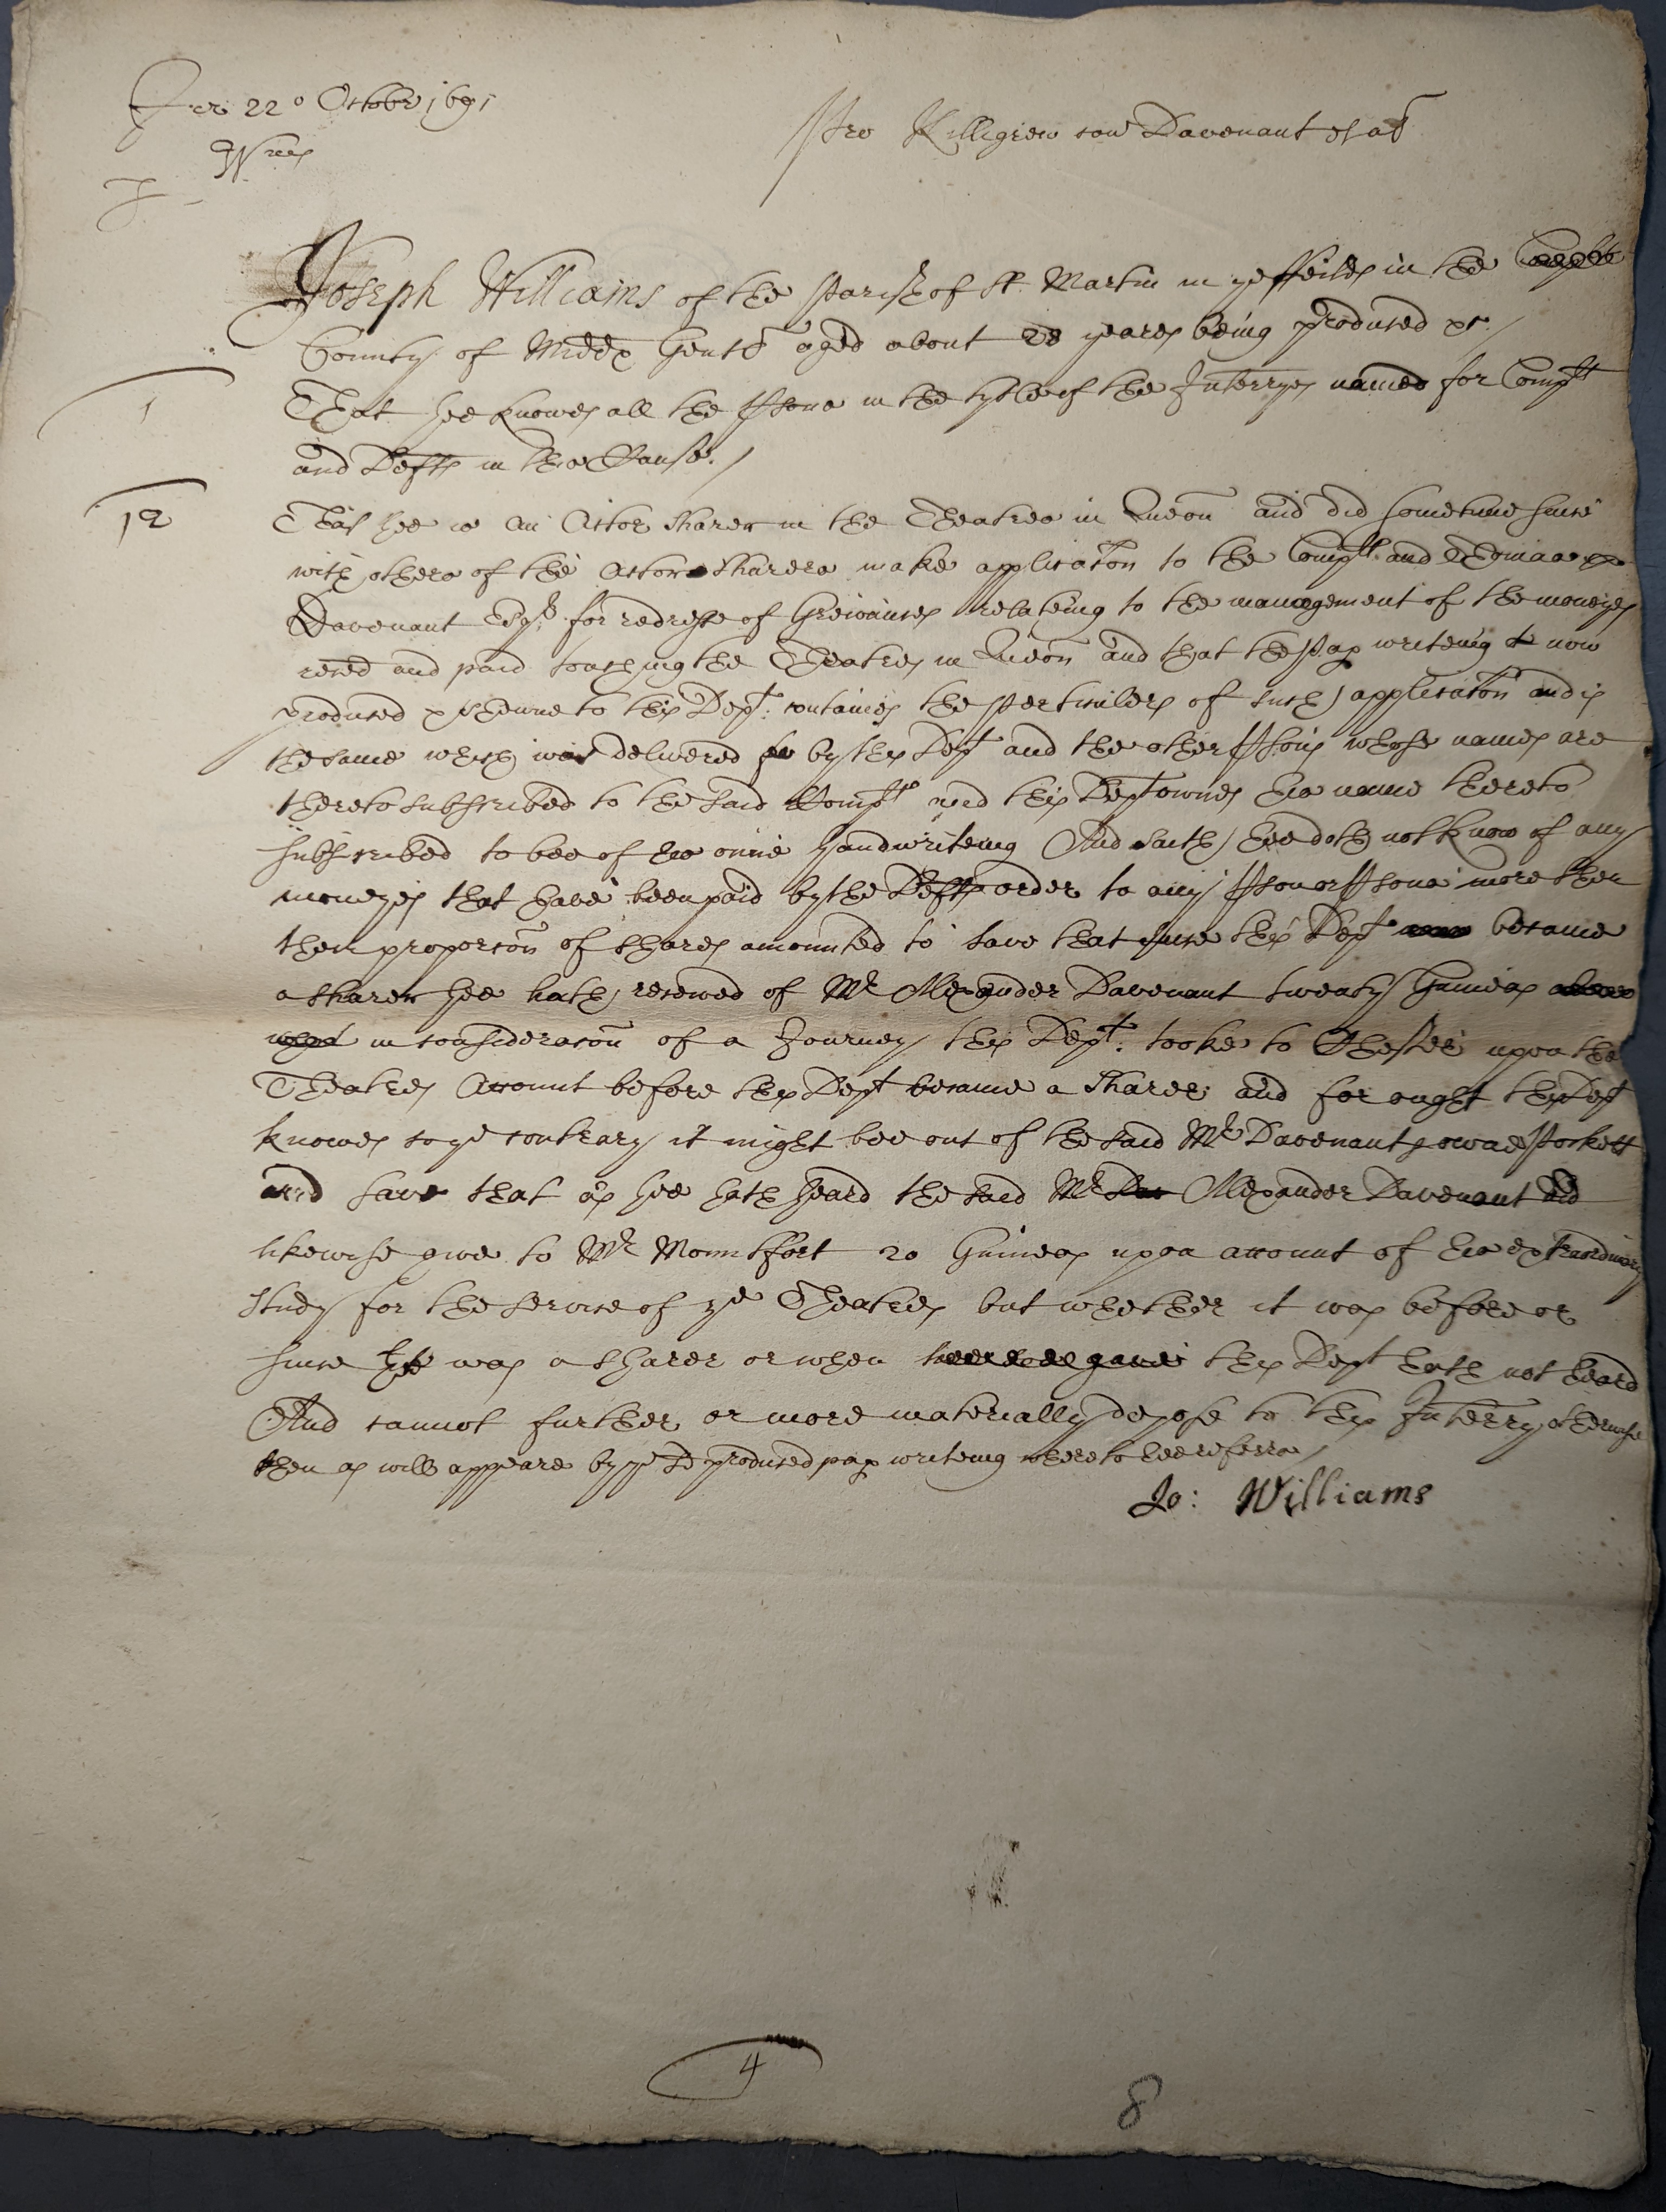 Jur 22o Octobr 1691
Pro Killigrew con Davenant et al
Joseph Williams of the Parish of St. Martin in ye ffeilds in the
County of Middx Gent aged about 28 yeares being produced &c.
1
That hee knowes all the Psons in the tytle of the Interryes named for Complt
and Defts in the Cause.
12
That hee is an Actor Sharer in the Theatres in Queon and did sometime since
with others of the Actors Sharers make applicacon to the Complt. and Thomas
Davenant Esqr. for redresse of Greivances relateing to the management of the moneyes
reced and paid touching the Theatres in Queon and that the Pap writeing now
produced & shewne to this Dept. containes the perticulers of such applicacon and is
the same which was delivered by this Dept and the other Psons whose names are
thereto subscribed to the said Complt and this Dept ownes his name thereto
subscribed to bee of his owne handwriteing And saith hee doth not know of any
moneyes that have been paid by the Defts order to any Pson or Psons more then
their proporcon of shares amounted to save that since this Dept became
a sharer hee hath received of Mr Alexander Davenant twenty Guineas
in consideracon of a Journey this Dept. tooke to Chester upon the
Theatres Account before this Dept became a Sharer and for ought this Dept
knowes to ye contrary it might bee out of the said Mr Davenants owne Pockett
and save that as hee hath heard the said Mr Alexander Davenant did
likewise give to Mr Mountfort 20 Guineas upon account of his extraordinary
study for the service of ye Theatres but whether it was before or
since hee was a sharer or when this Dept hath not heard
And cannot further or more materially depose to this Interry otherwise
then as will appeare by ye sd produced pap writeing whereto hee referrs
Jo: Williams
4
8